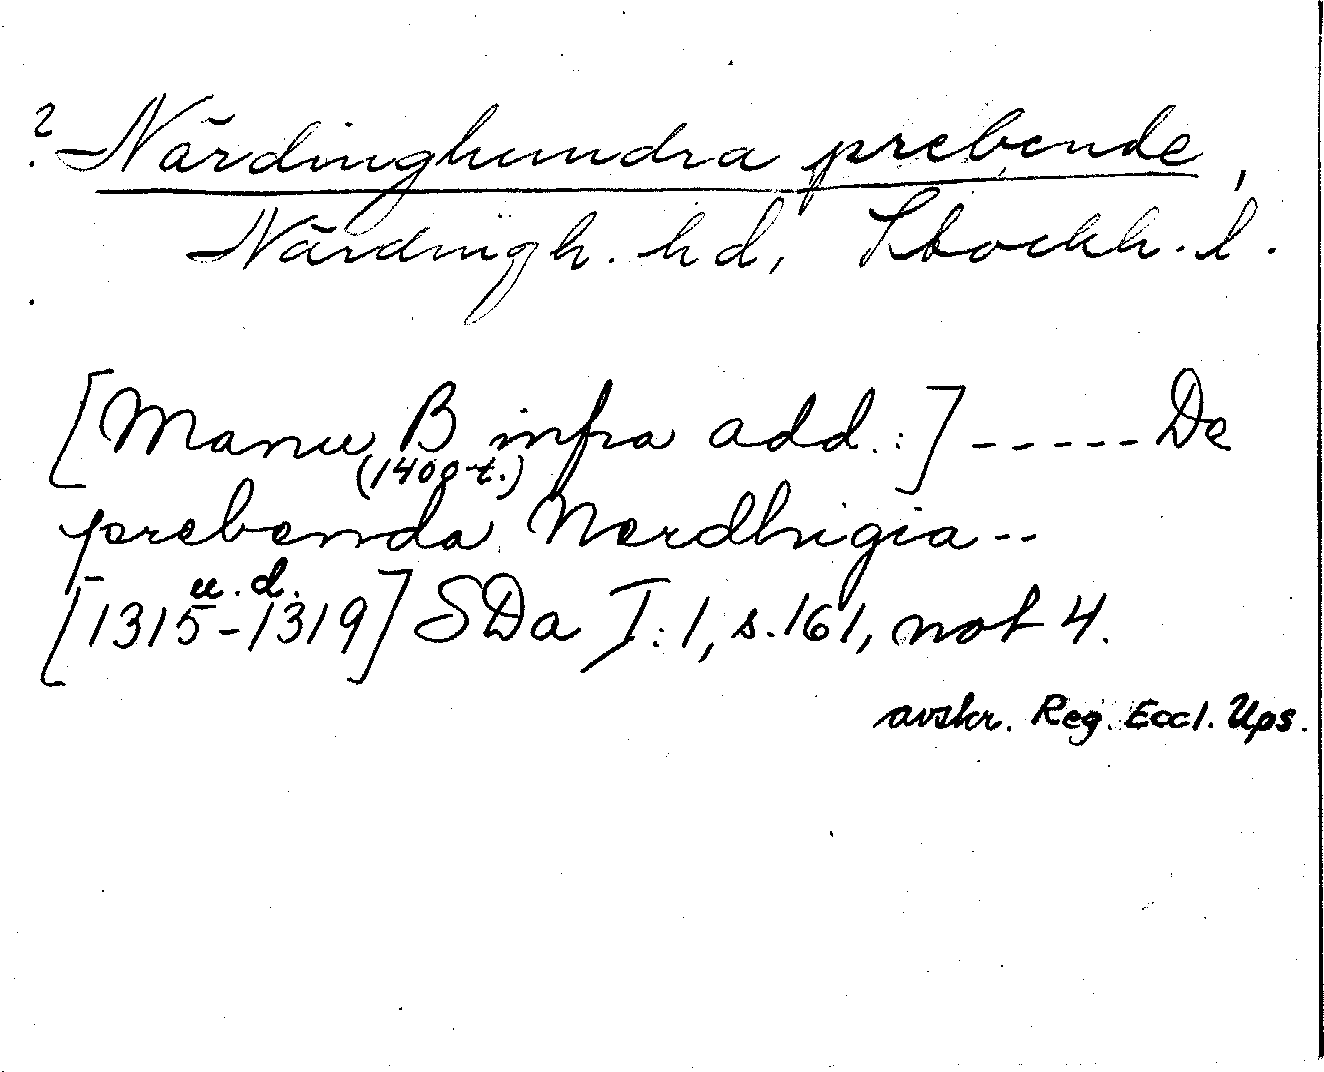 ? Närdinghundra prebende,
Närdingh. hd, Stockh. l.
[Manu B infra add.:] ----- De
(1400-t.)
prebenda Nerdhigia --
u. d.
[1315-1319] SDa I:1, s. 161, not 4.
avskr. Reg. Eccl. Ups.